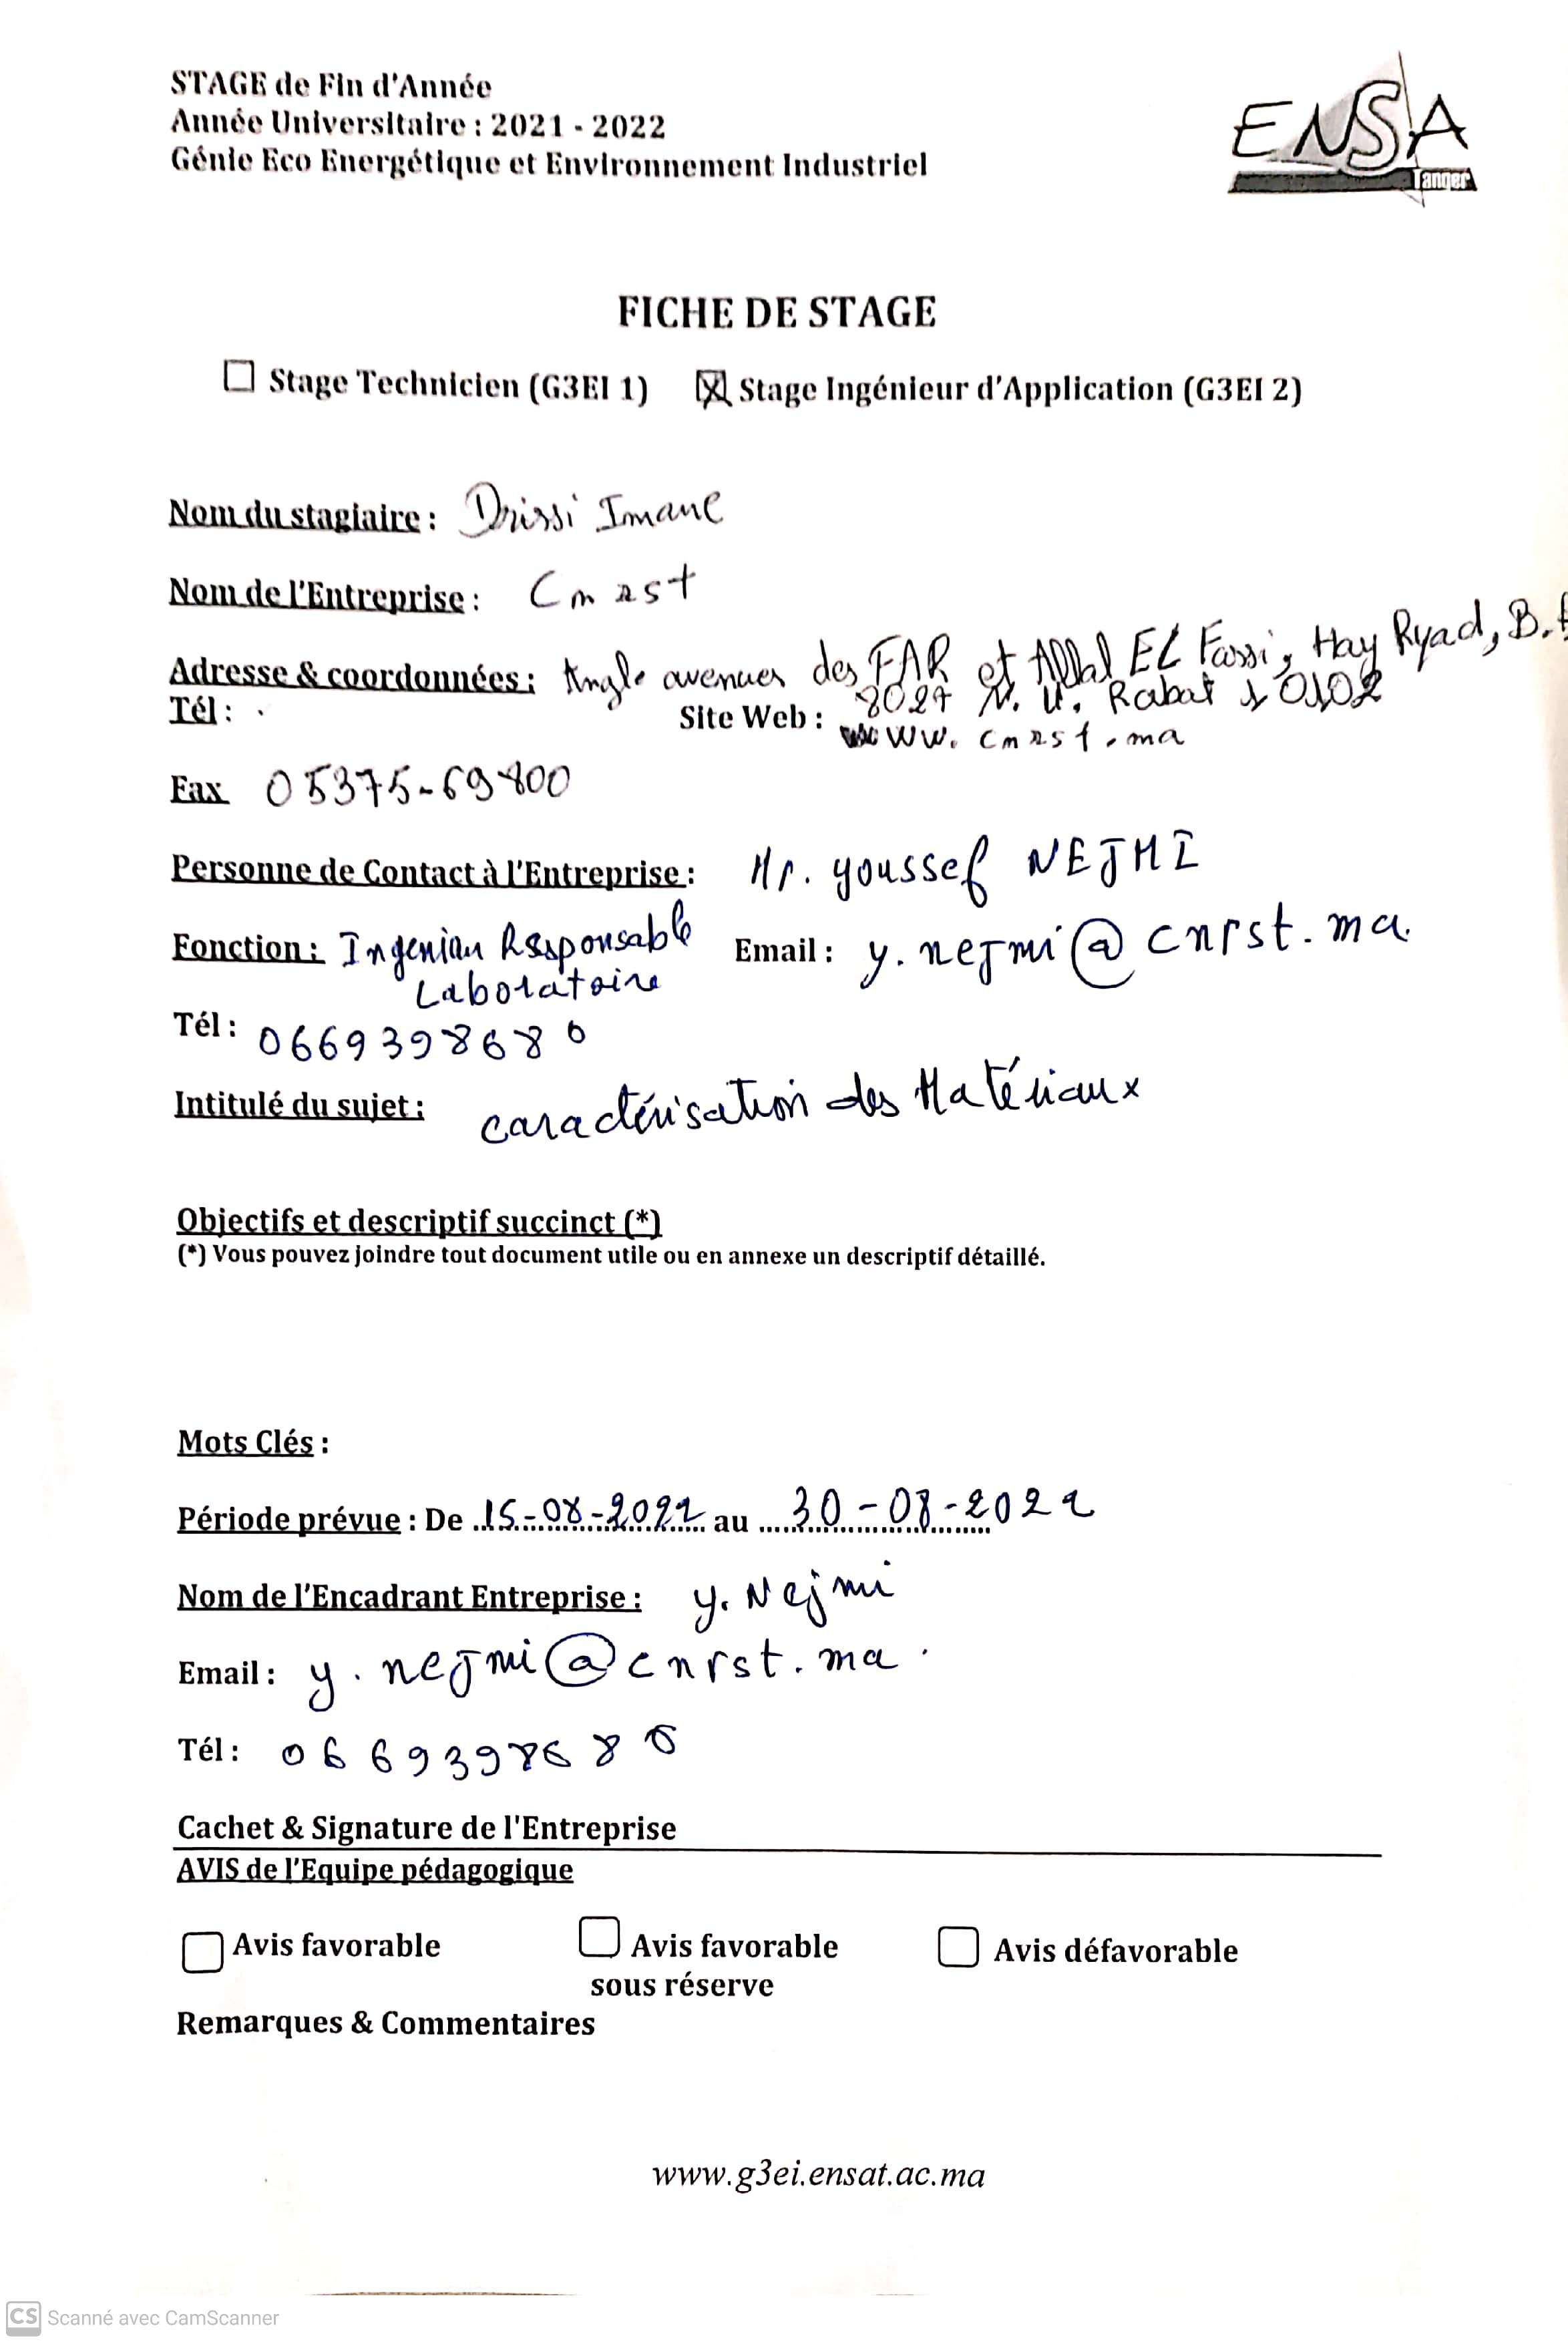 STAGE de Fin d'Année
Année Universitaire : 2021 - 2022
Génie Eco Energétique et Environnement Industriel
ENSA
Tanger
FICHE DE STAGE
☐ Stage Technicien (G3EI 1) ☒ Stage Ingénieur d'Application (G3EI 2)
Nom du stagiaire : Drissi Imane
Nom de l'Entreprise : Cnrst
Adresse & coordonnées : Angle avenues des FAR et Allal EL Fassi, Hay Ryad, B.
8027 N. U. Rabat 10102
Tél : Site Web : www. cnrst.ma
Fax 05375-69800
Personne de Contact à l'Entreprise : Mr. youssef NEJMI
Fonction : Ingénieur Responsable Laboratoire Email : y.nejmi@cnrst.ma.
Tél : 0669398680
Intitulé du sujet : caractérisation des Matériaux
Objectifs et descriptif succinct (*)
(*) Vous pouvez joindre tout document utile ou en annexe un descriptif détaillé.
Mots Clés :
Période prévue : De 15-08-2022 au 30-08-2022
Nom de l'Encadrant Entreprise : y. Nejmi
Email : y.nejmi@cnrst.ma.
Tél : 0669398680
Cachet & Signature de l'Entreprise
AVIS de l'Equipe pédagogique
☐ Avis favorable ☐ Avis favorable ☐ Avis défavorable
sous réserve
Remarques & Commentaires
www.g3ei.ensat.ac.ma
CS Scanné avec CamScanner